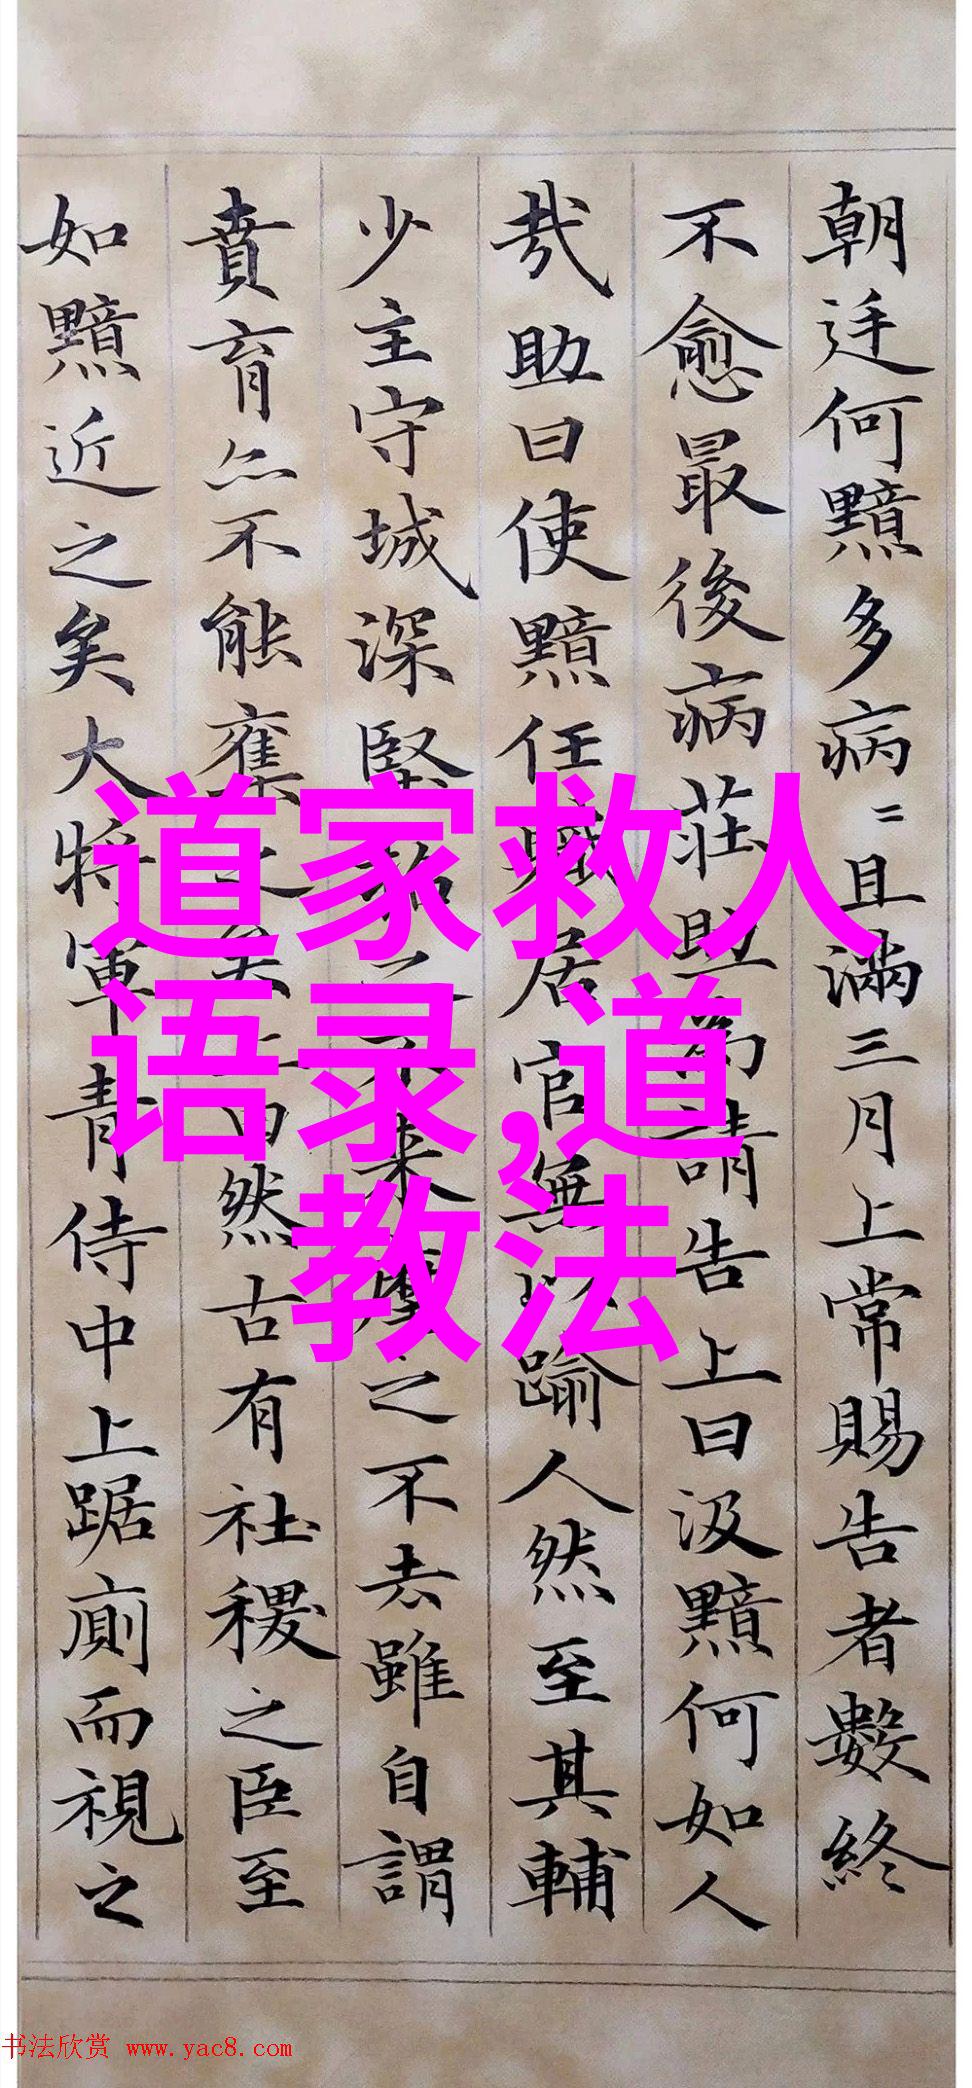 朝廷何黯多病〻且满三月上常賜告者數終
不愈最後病莊助為請告上曰汲黯何如人
哉助曰使黯任職居官無以踰人然至其輔
少主守城深堅招之不来麾之不去雖自謂
賁育亦不能奪之矣上曰然古有社稷之臣至
如黯近之矣大將軍青侍中上踞廁而視之
道家救人
语录,道
教法
书法欣赏 www.yac8.com